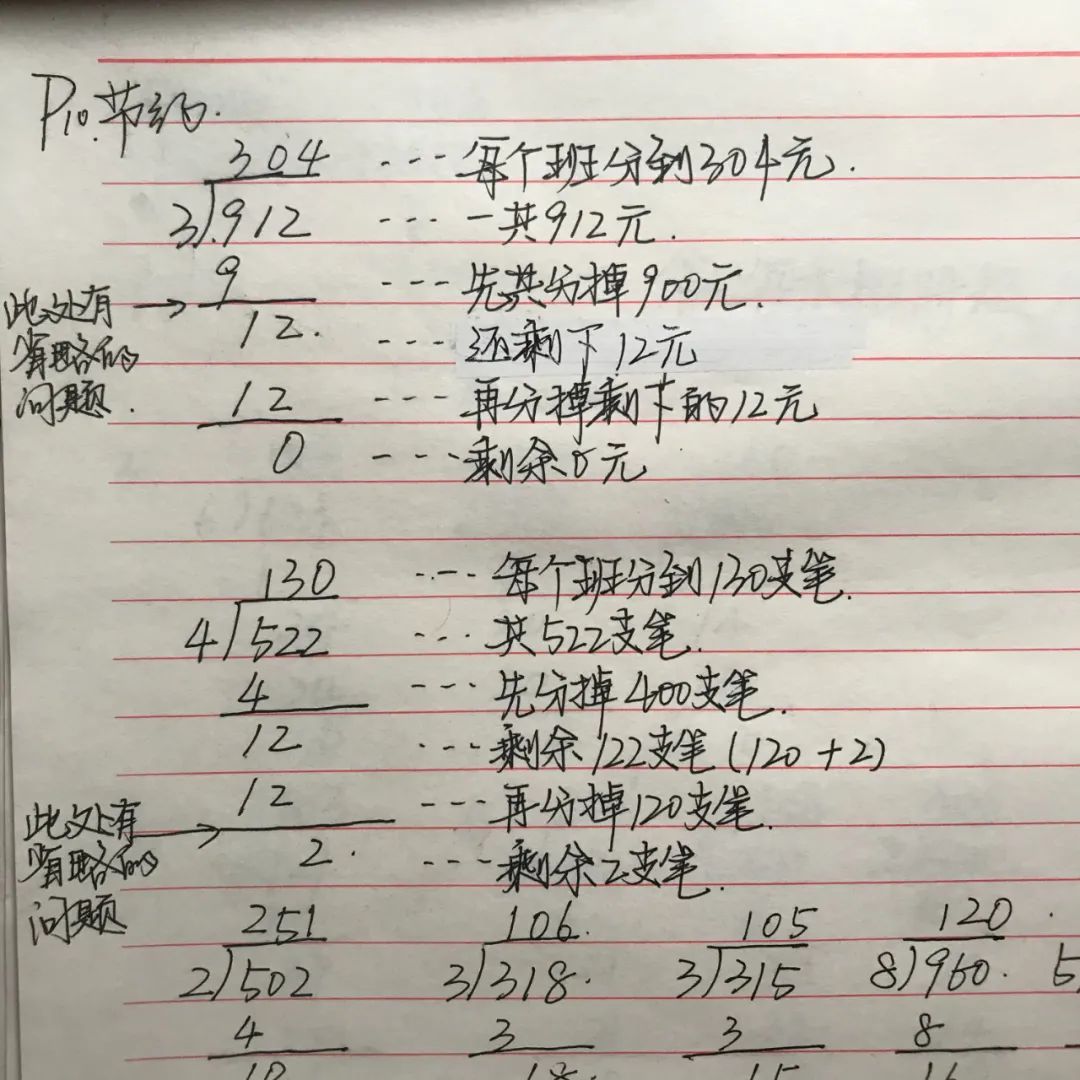 P10.节约.
304 --- 每个班分到304元.
3)912 --- 一共912元.
9 --- 先共分掉900元.
此处有省略的问题.
12. --- 还剩下12元
12 --- 再分掉剩下的12元
0 --- 剩余0元
130 --- 每个班分到130支笔.
4)522 --- 共522支笔.
4 --- 先分掉400支笔.
12 --- 剩余122支笔(120+2)
12 --- 再分掉120支笔.
此处有省略的问题
2. --- 剩余2支笔.
251 106. 105 120.
2)502 3)318. 3)315 8)960. 5)
4 3 3 8
10 18. 15 16